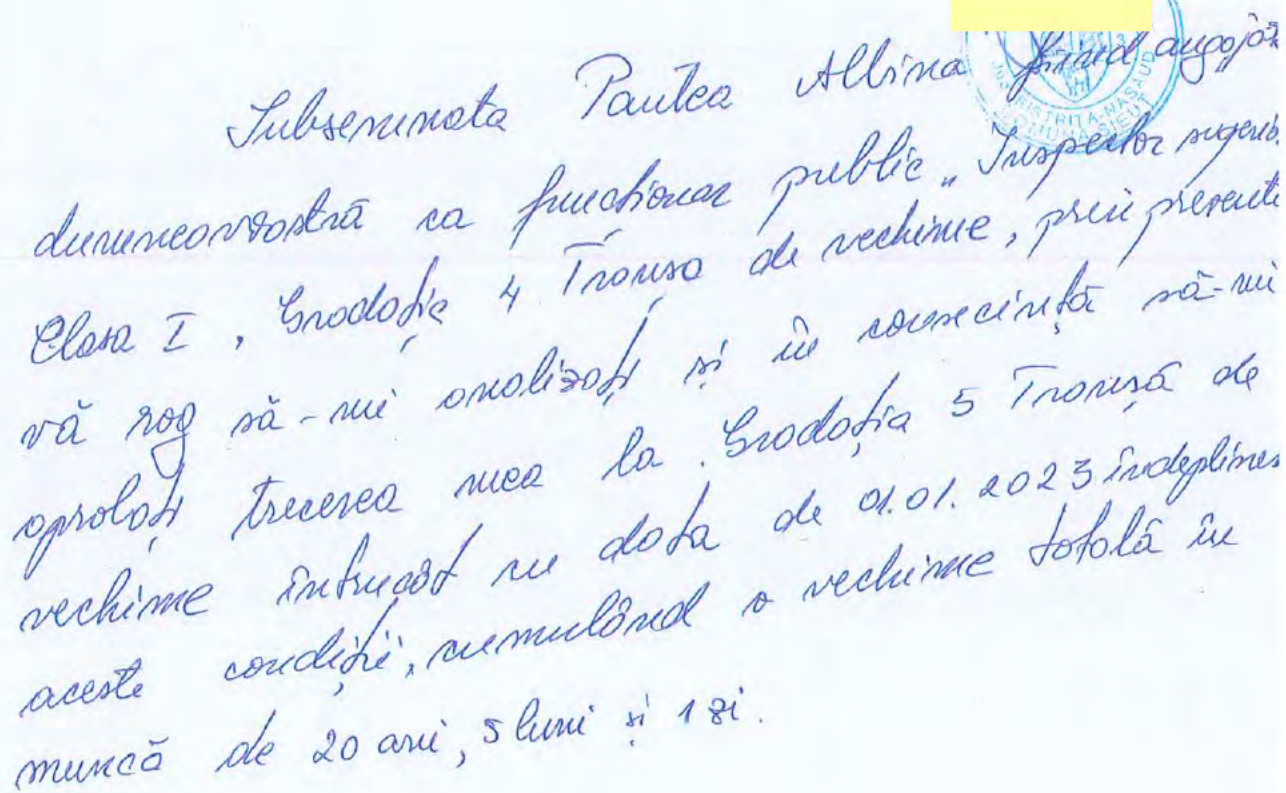 JUD. BISTRIȚA-NĂSĂUD
COMUNA ȘIEUT
Subsemnata Pantea Albina fiind angaja
dumneavoastră ca funcționar public „Inspector superio
Clasa I, Gradație 4 Tranșa de vechime, prin prezenta
vă rog să-mi analizați și în consecință să-mi
aprobați trecerea mea la Gradația 5 Tranșă de
vechime întrucât cu data de 01.01.2023 îndeplines
aceste condiții, cumulând o vechime totală în
muncă de 20 ani, 5 luni și 1 zi.